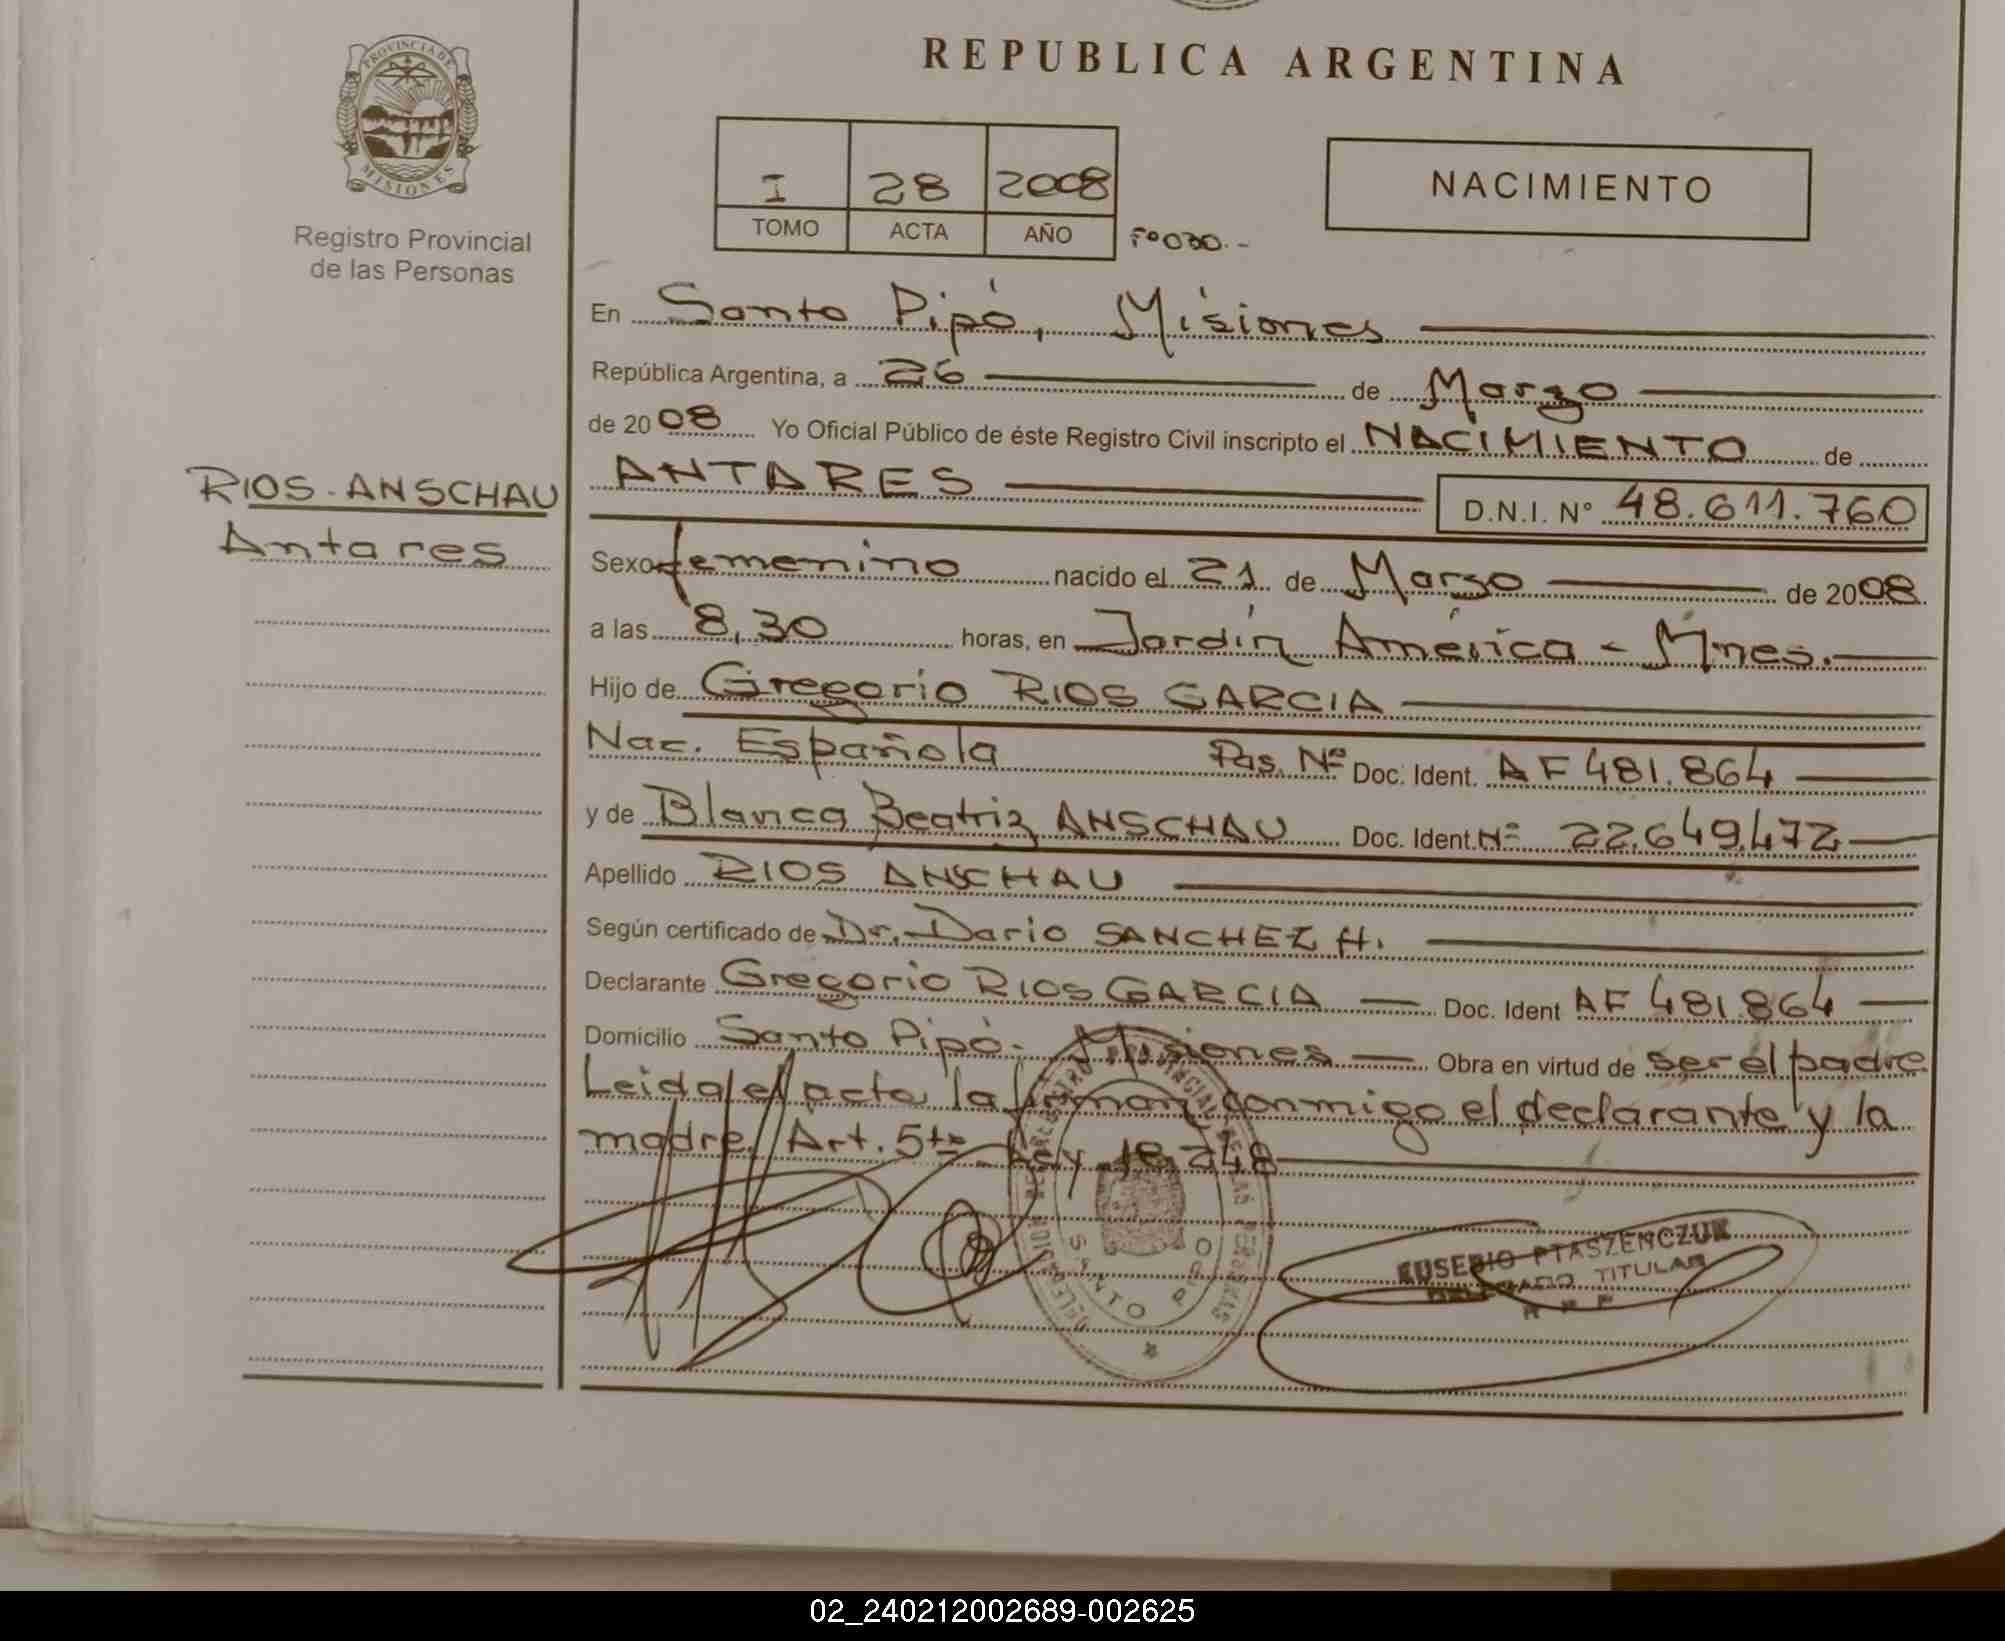 PROVINCIA DE
MISIONES
Registro Provincial
de las Personas
RIOS-ANSCHAU
Antares
REPUBLICA ARGENTINA
I 28 2008
TOMO ACTA AÑO Fº030.-
NACIMIENTO
En Santo Pipó, Misiones
República Argentina, a 26 de Marzo
de 2008 Yo Oficial Público de éste Registro Civil inscripto el NACIMIENTO de
ANTARES D.N.I. Nº 48.611.760
Sexo femenino nacido el 21 de Marzo de 2008
a las 8,30 horas, en Jardín América - Mnes.
Hijo de Gregorio RIOS GARCIA
Nac. Española Pas. Nº Doc. Ident. AF481.864
y de Blanca Beatriz ANSCHAU Doc. Ident. Nº 22.649.472
Apellido RIOS ANSCHAU
Según certificado de Dr. Dario SANCHEZ H.
Declarante Gregorio RIOS GARCIA Doc. Ident AF 481.864
Domicilio Santo Pipó. Misiones Obra en virtud de ser el padre
Leida el acta la firman conmigo el declarante y la
madre. Art. 5to Ley 18.248
SANTO PIPO
EUSEBIO PTASZENCZUK
DELEGADO TITULAR
R P P
02_240212002689-002625